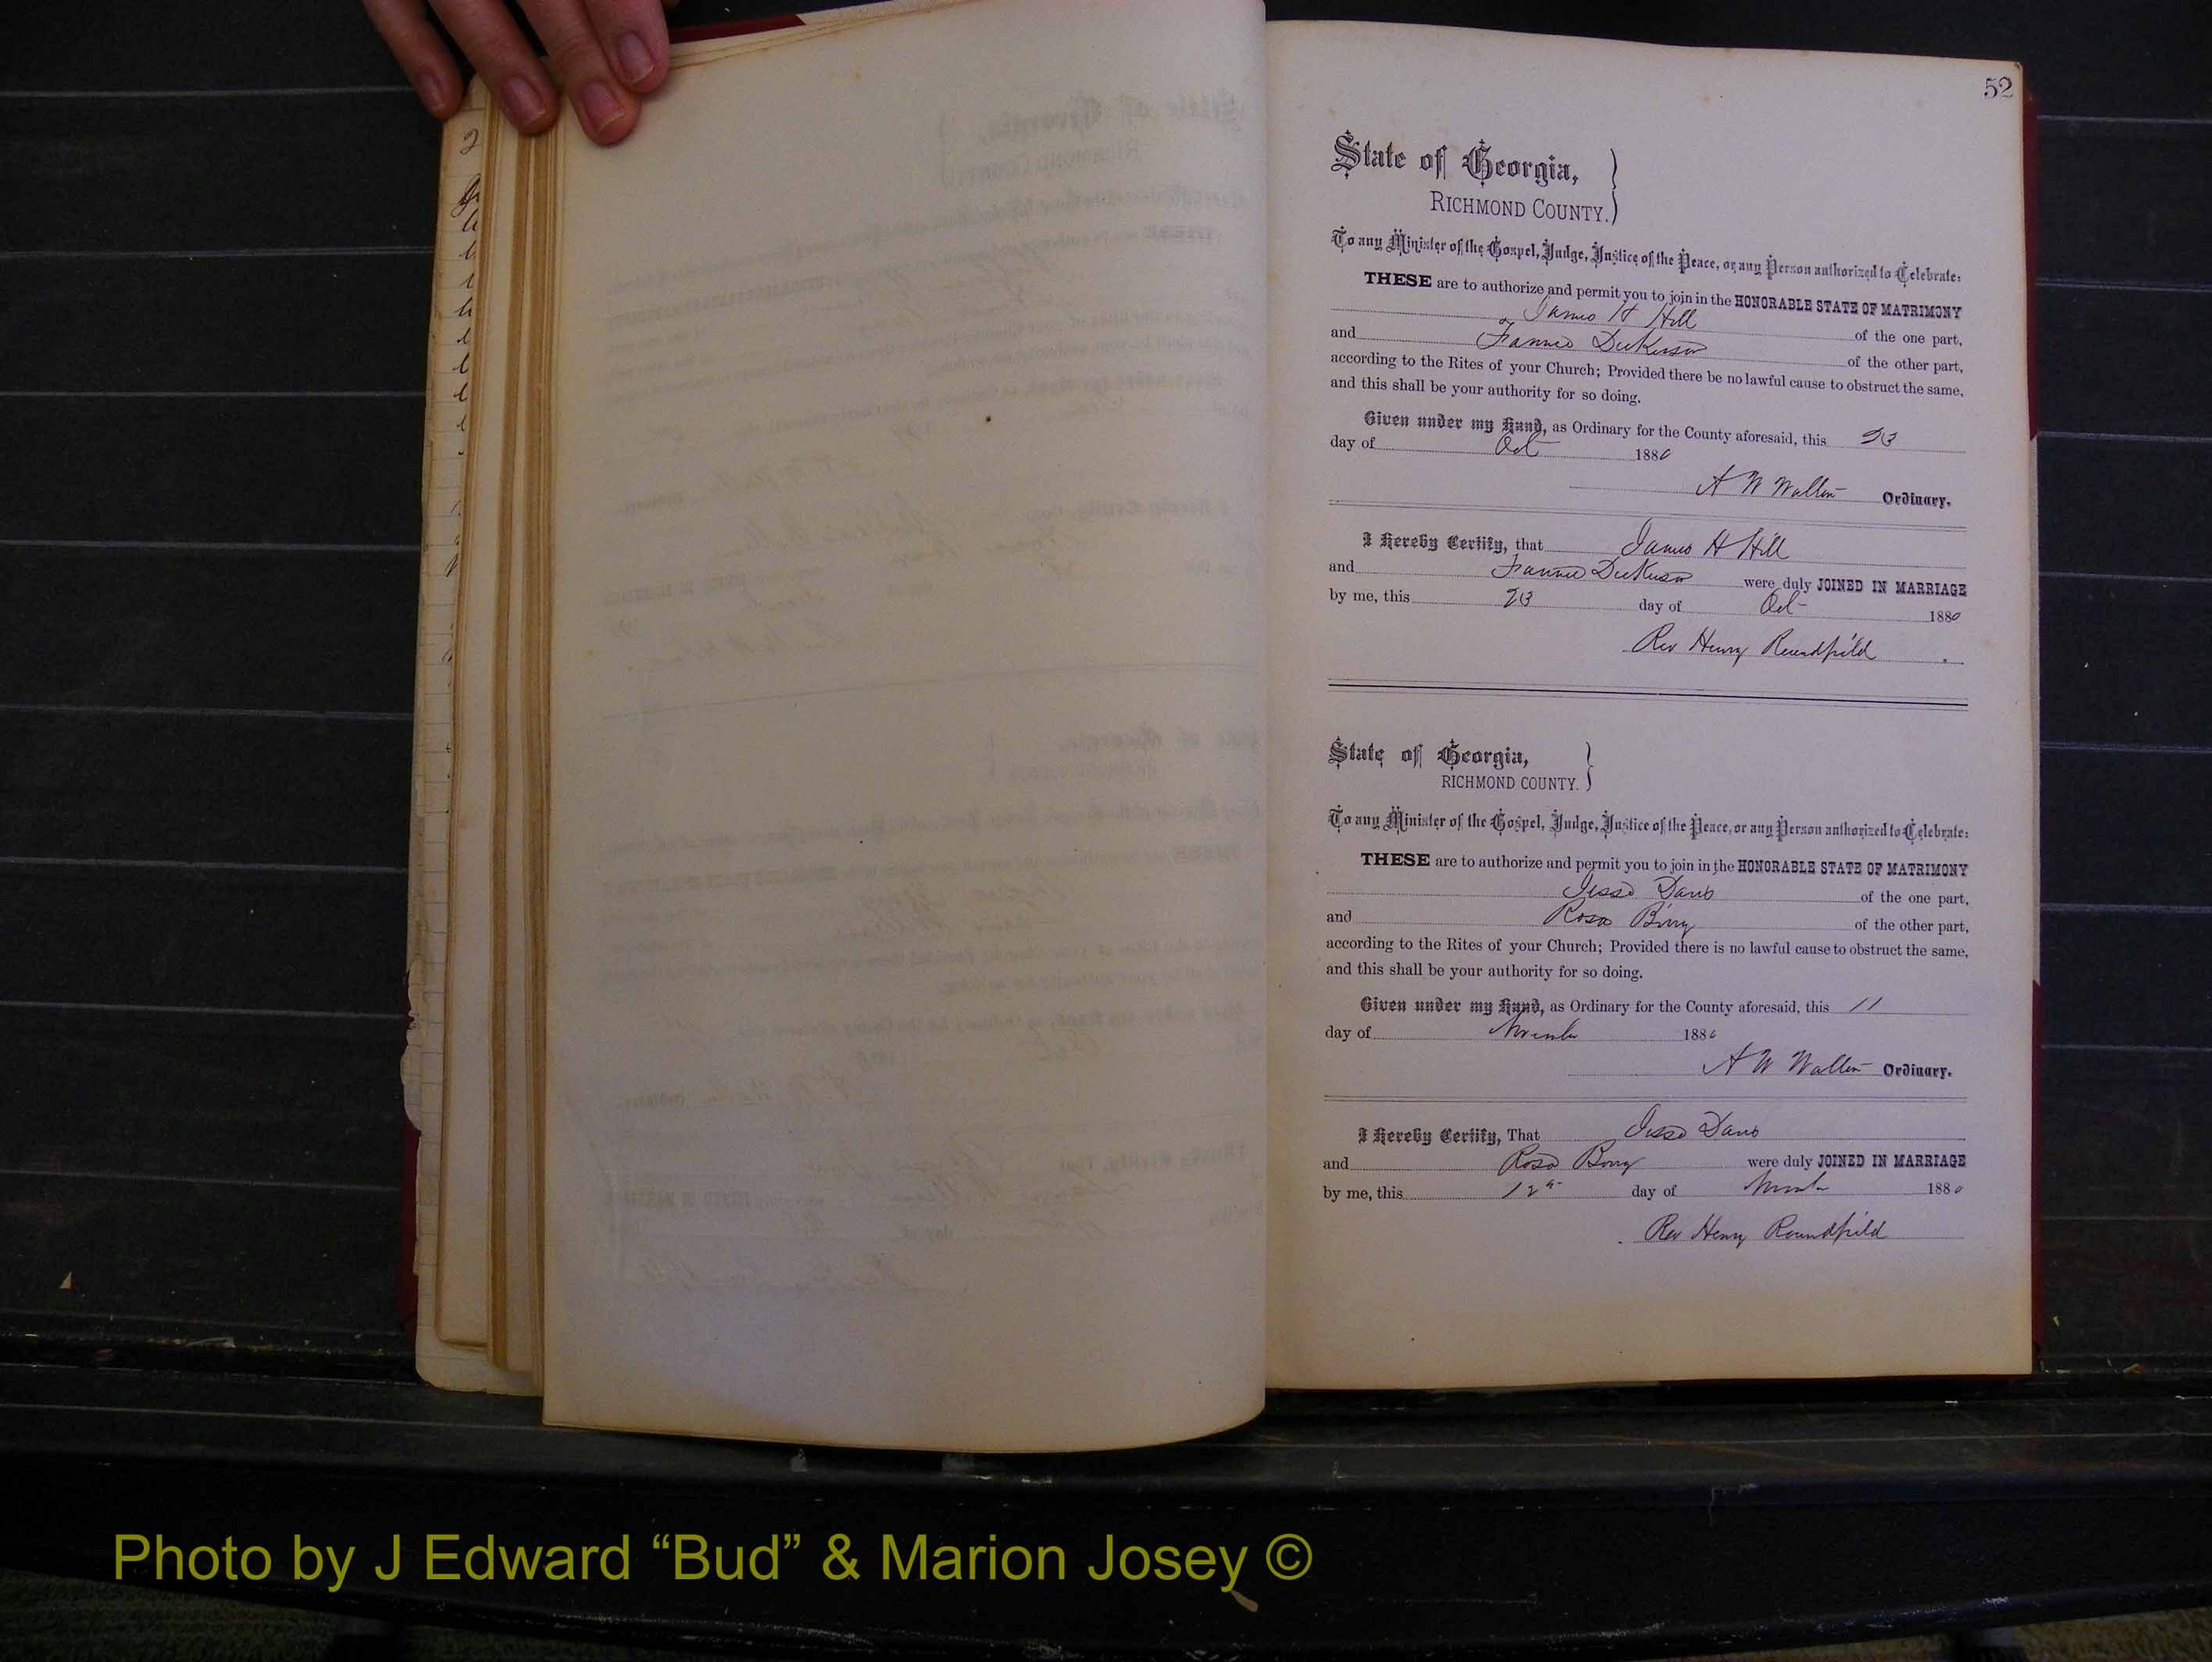 52
State of Georgia,
RICHMOND COUNTY.
To any Minister of the Gospel, Judge, Justice of the Peace, or any Person authorized to Celebrate:
THESE are to authorize and permit you to join in the HONORABLE STATE OF MATRIMONY
James H Hill of the one part,
and Fannie Dickerson of the other part,
according to the Rites of your Church; Provided there be no lawful cause to obstruct the same,
and this shall be your authority for so doing.
Given under my Hand, as Ordinary for the County aforesaid, this 23
day of Oct 1880
A W Walton Ordinary.
I Hereby Certify, that James H Hill
and Fannie Dickerson were duly JOINED IN MARRIAGE
by me, this 23 day of Oct 1880
Rev Henry Roundfield
State of Georgia,
RICHMOND COUNTY.
To any Minister of the Gospel, Judge, Justice of the Peace, or any Person authorized to Celebrate:
THESE are to authorize and permit you to join in the HONORABLE STATE OF MATRIMONY
Jesse Davis of the one part,
and Rosa of the other part,
according to the Rites of your Church; Provided there is no lawful cause to obstruct the same,
and this shall be your authority for so doing.
Given under my Hand, as Ordinary for the County aforesaid, this 11
day of November 1880
A W Walton Ordinary.
I Hereby Certify, That Jesse Davis
and Rosa were duly JOINED IN MARRIAGE
by me, this 12th day of 1880
Rev Henry Roundfield
Photo by J Edward “Bud” & Marion Josey ©